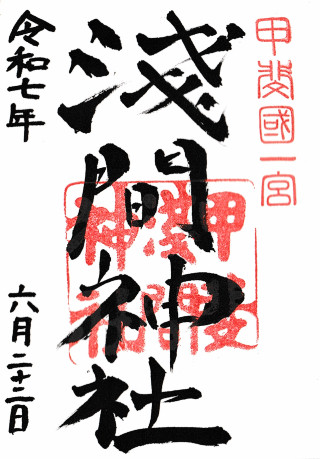 甲斐國一宮
淺間神社
甲斐
淺間
神社
令和七年
六月二十二日